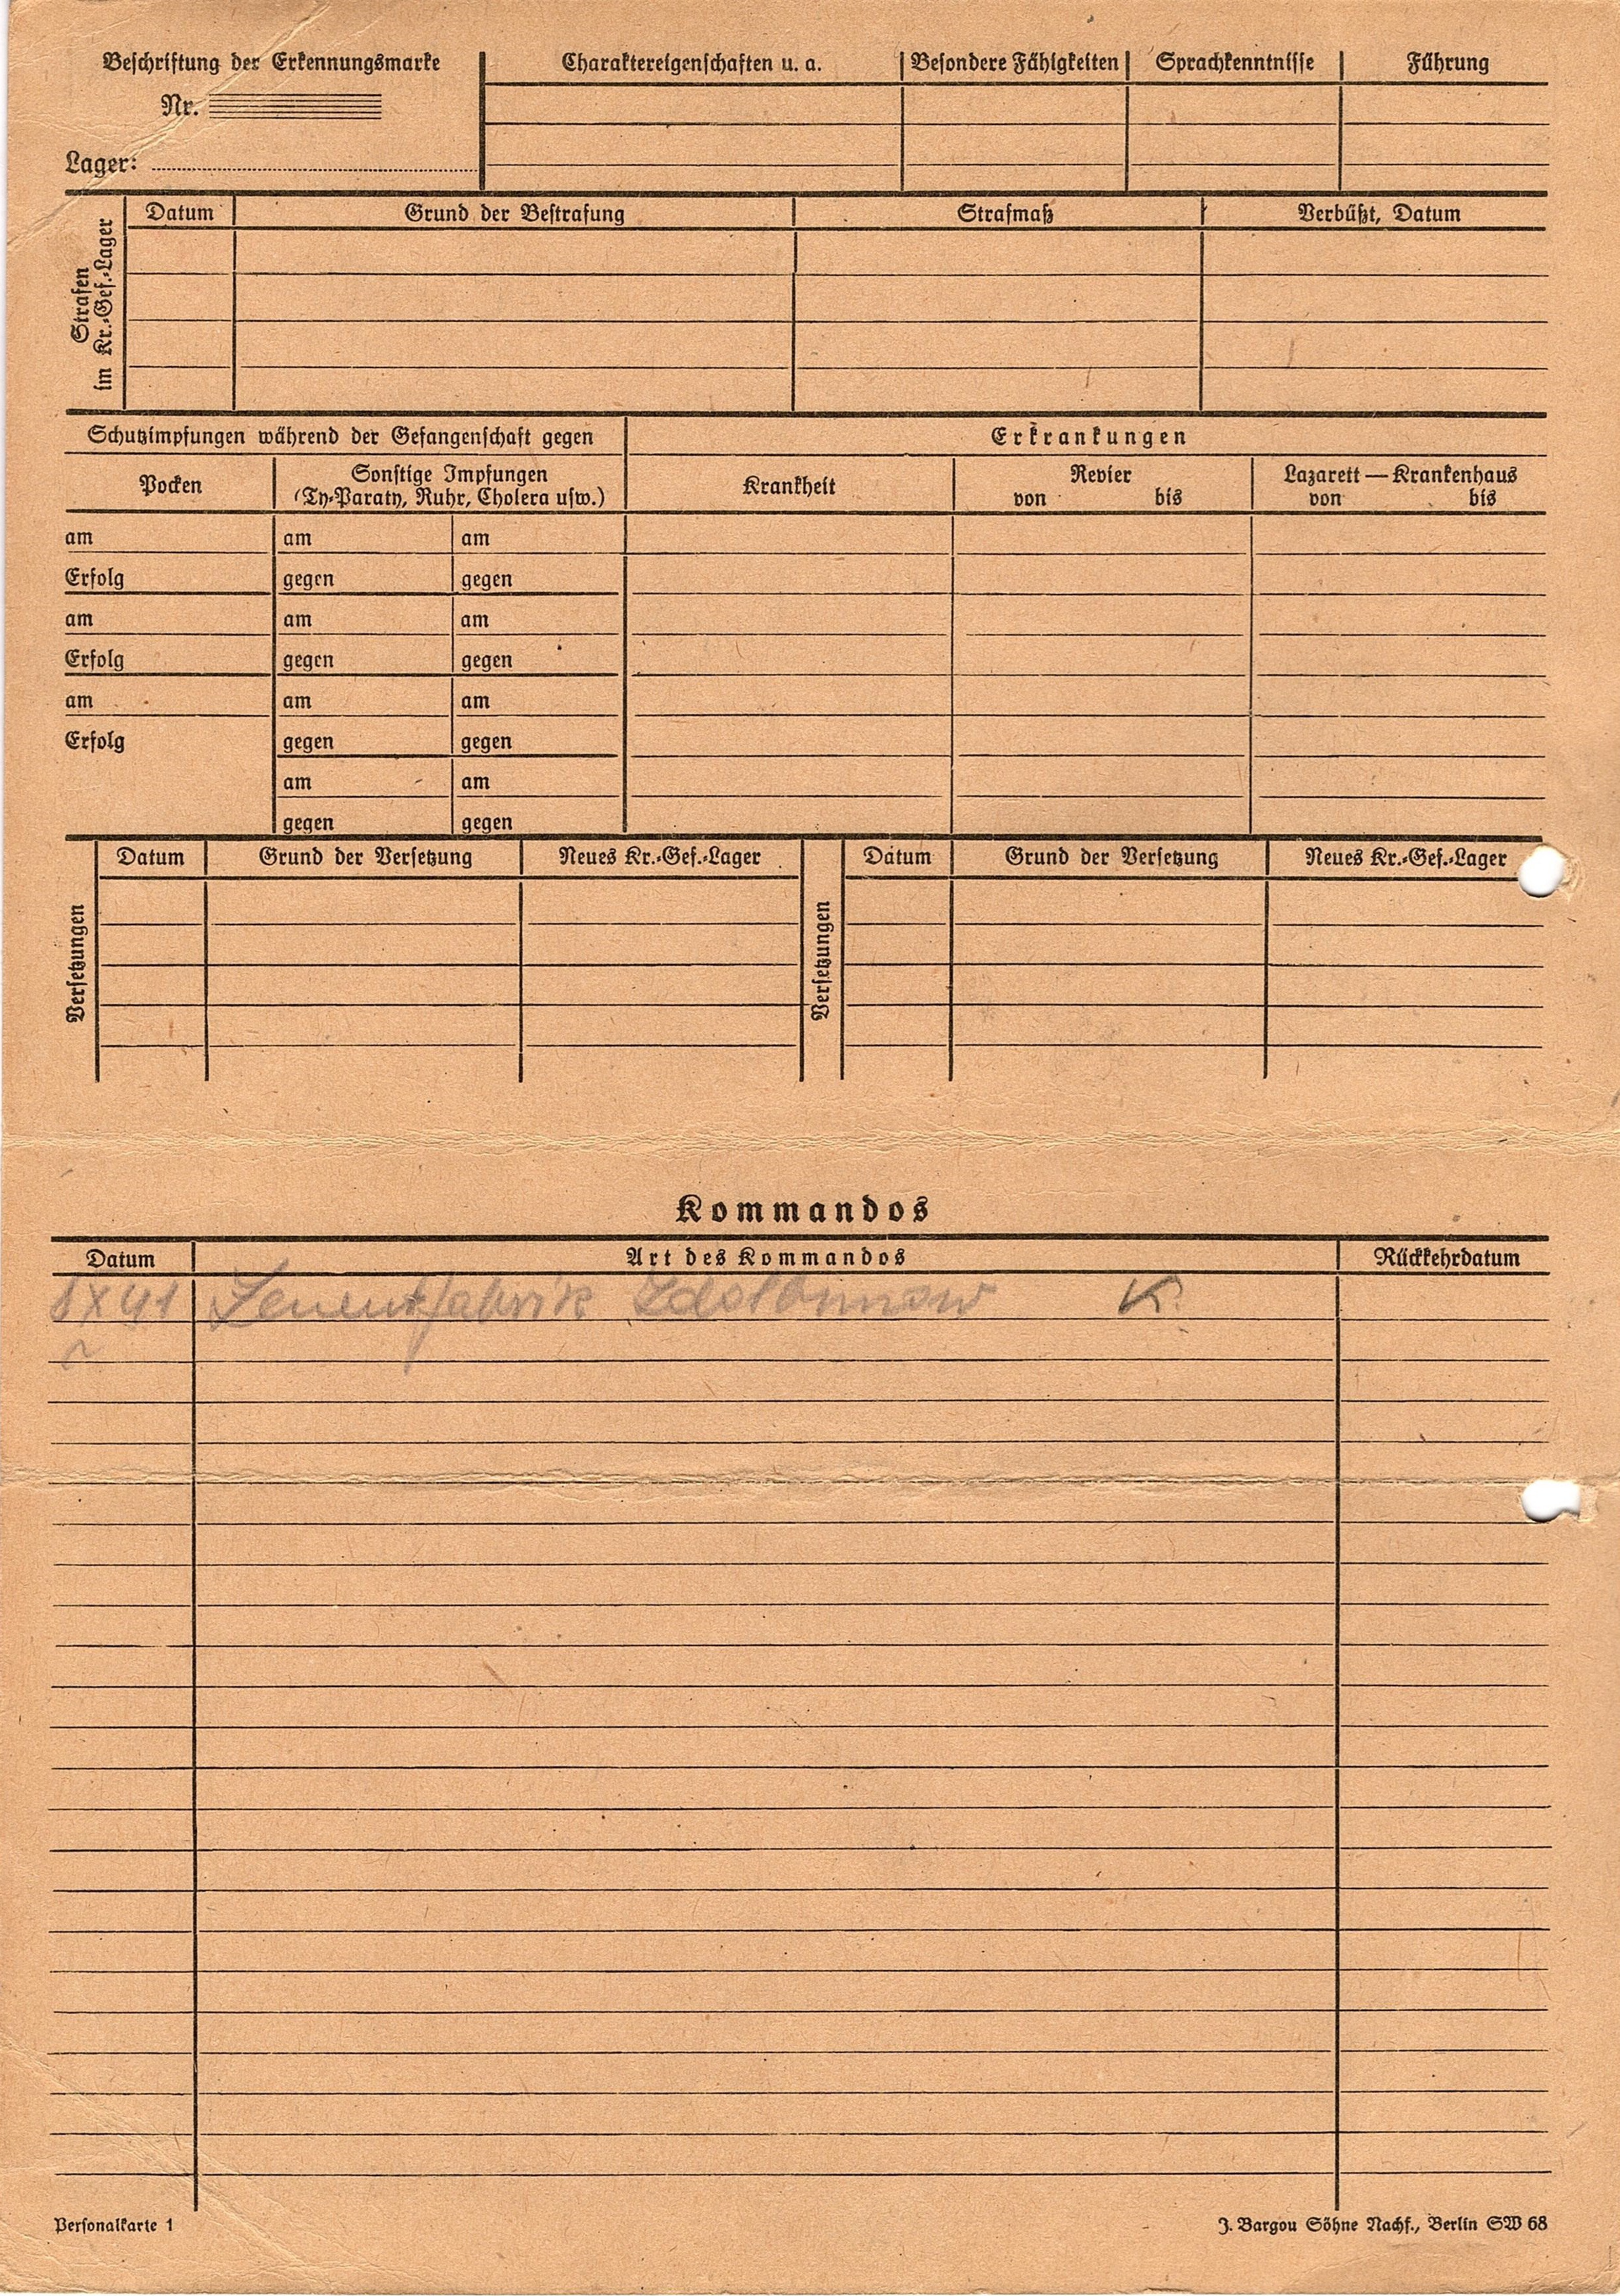 Beschriftung der Erkennungsmarke
Nr.
Lager:
Charaktereigenschaften u. a. Besondere Fähigkeiten Sprachkenntnisse Führung
Strafen
im Kr.-Gef.-Lager
Datum Grund der Bestrafung Strafmaß Verbüßt, Datum
Schutzimpfungen während der Gefangenschaft gegen
Erkrankungen
Pocken
Sonstige Impfungen
(Ty-Paraty, Ruhr, Cholera usw.)
Krankheit
Revier
von bis
Lazarett — Krankenhaus
von bis
am am am
Erfolg gegen gegen
am am am
Erfolg gegen gegen
am am am
Erfolg gegen gegen
am am
gegen gegen
Versetzungen
Datum Grund der Versetzung Neues Kr.-Gef.-Lager
Versetzungen
Datum Grund der Versetzung Neues Kr.-Gef.-Lager
Kommandos
Datum Art des Kommandos Rückkehrdatum
X 41 Zementfabrik K.
Personalkarte 1
J. Bargou Söhne Nachf., Berlin SW 68